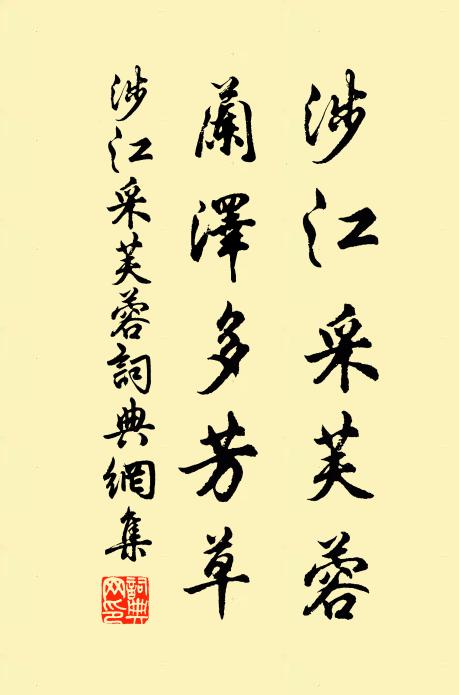 涉江采芙蓉
蘭澤多芳草
涉江采芙蓉詞典網集
詞典網印